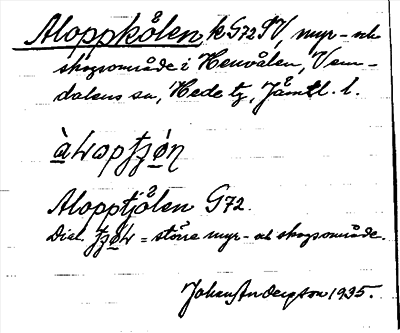 Aloppkölen k G72 SV, myr- och
skogsområde i Henvålen, Vem-
dalens sn, Hede tg, Jämtl. l.
Alopptjölen G72.
Dial. = större myr- och skogsområde.
Johan Anderson 1935.